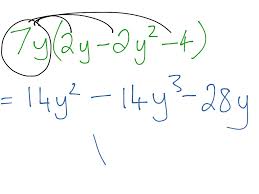 7y(2y-2y²-4)
= 14y² - 14y³ - 28y